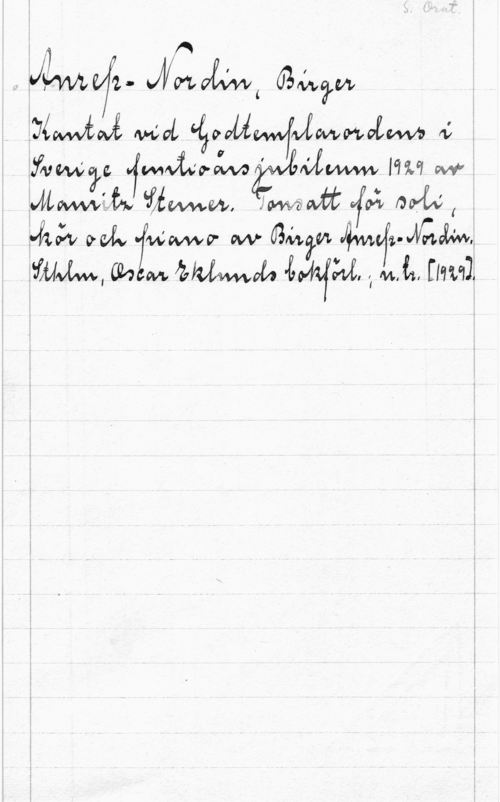 S. Orat.
Anrep-Nordin, Birger
Kantat vid Godtemplarordens i
Sverige femtioårsjubileum 1929 av
Mauritz Sterner. Tonsatt för soli,
kör och piano av Birger Anrep-Nordin.
Sthlm, Oscar Eklunds bokförl.; u.tr. [1929].